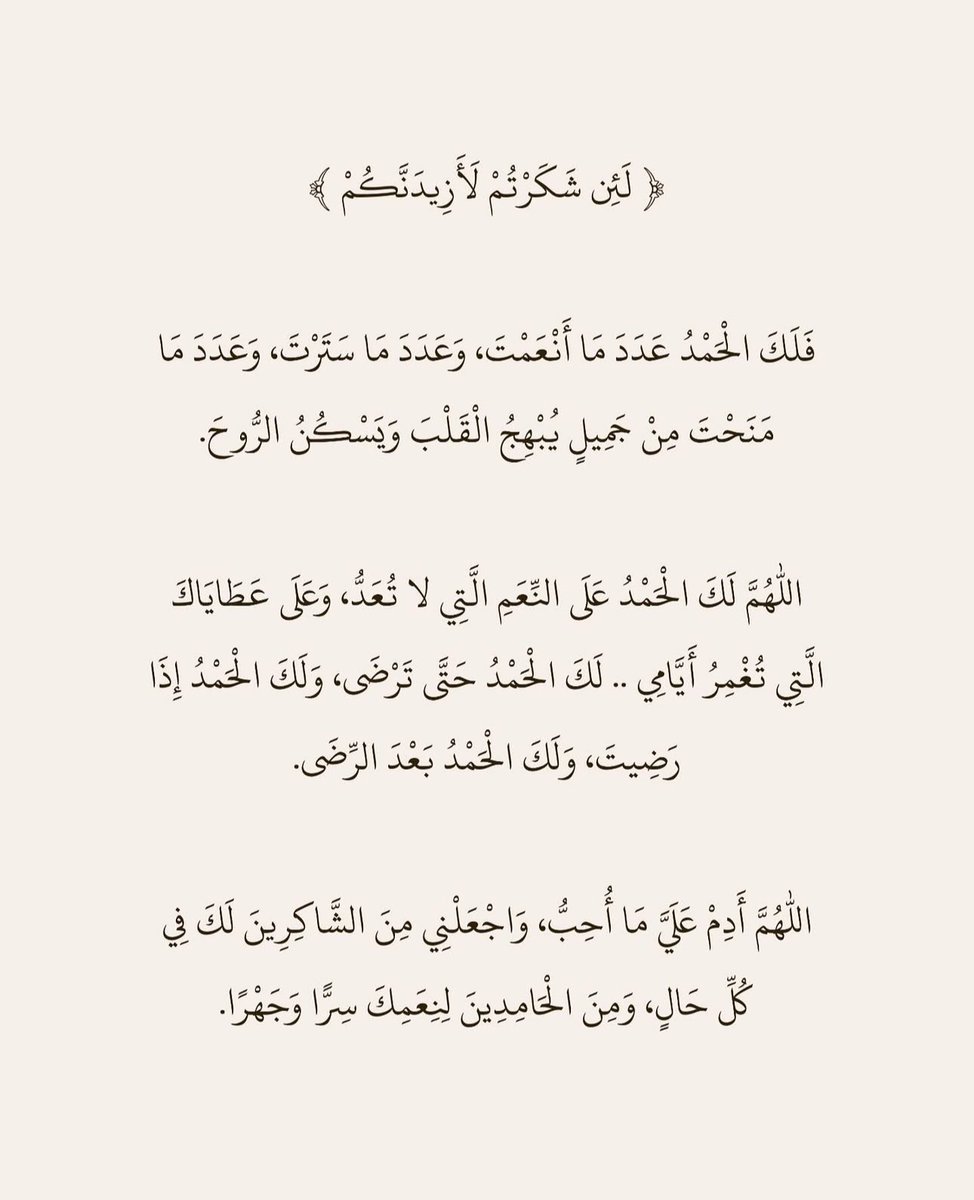 ﴿ لَئِن شَكَرْتُمْ لَأَزِيدَنَّكُمْ ﴾
فَلَكَ الْحَمْدُ عَدَدَ مَا أَنْعَمْتَ، وَعَدَدَ مَا سَتَرْتَ، وَعَدَدَ مَا
مَنَحْتَ مِنْ جَمِيلٍ يُبْهِجُ الْقَلْبَ وَيَسْكُنُ الرُّوحَ.
اللّٰهُمَّ لَكَ الْحَمْدُ عَلَى النِّعَمِ الَّتِي لا تُعَدُّ، وَعَلَى عَطَايَاكَ
الَّتِي تُغْمِرُ أَيَّامِي .. لَكَ الْحَمْدُ حَتَّى تَرْضَى، وَلَكَ الْحَمْدُ إِذَا
رَضِيتَ، وَلَكَ الْحَمْدُ بَعْدَ الرِّضَى.
اللّٰهُمَّ أَدِمْ عَلَيَّ مَا أُحِبُّ، وَاجْعَلْنِي مِنَ الشَّاكِرِينَ لَكَ فِي
كُلِّ حَالٍ، وَمِنَ الْحَامِدِينَ لِنِعَمِكَ سِرًّا وَجَهْرًا.